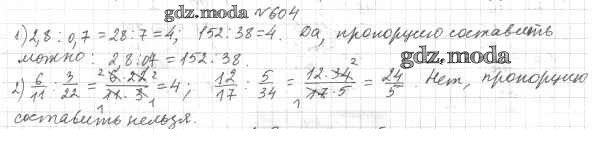 gdz.moda №604
1) 2,8 : 0,7 = 28 : 7 = 4; 152 : 38 = 4. Да, пропорцию составить
можно: 2,8 : 0,7 = 152 : 38.
gdz.moda
2) 6/11 : 3/22 = 6 · 22 / 11 · 3 = 4; 12/17 : 5/34 = 12 · 34 / 17 · 5 = 24/5. Нет, пропорцию
составить нельзя.